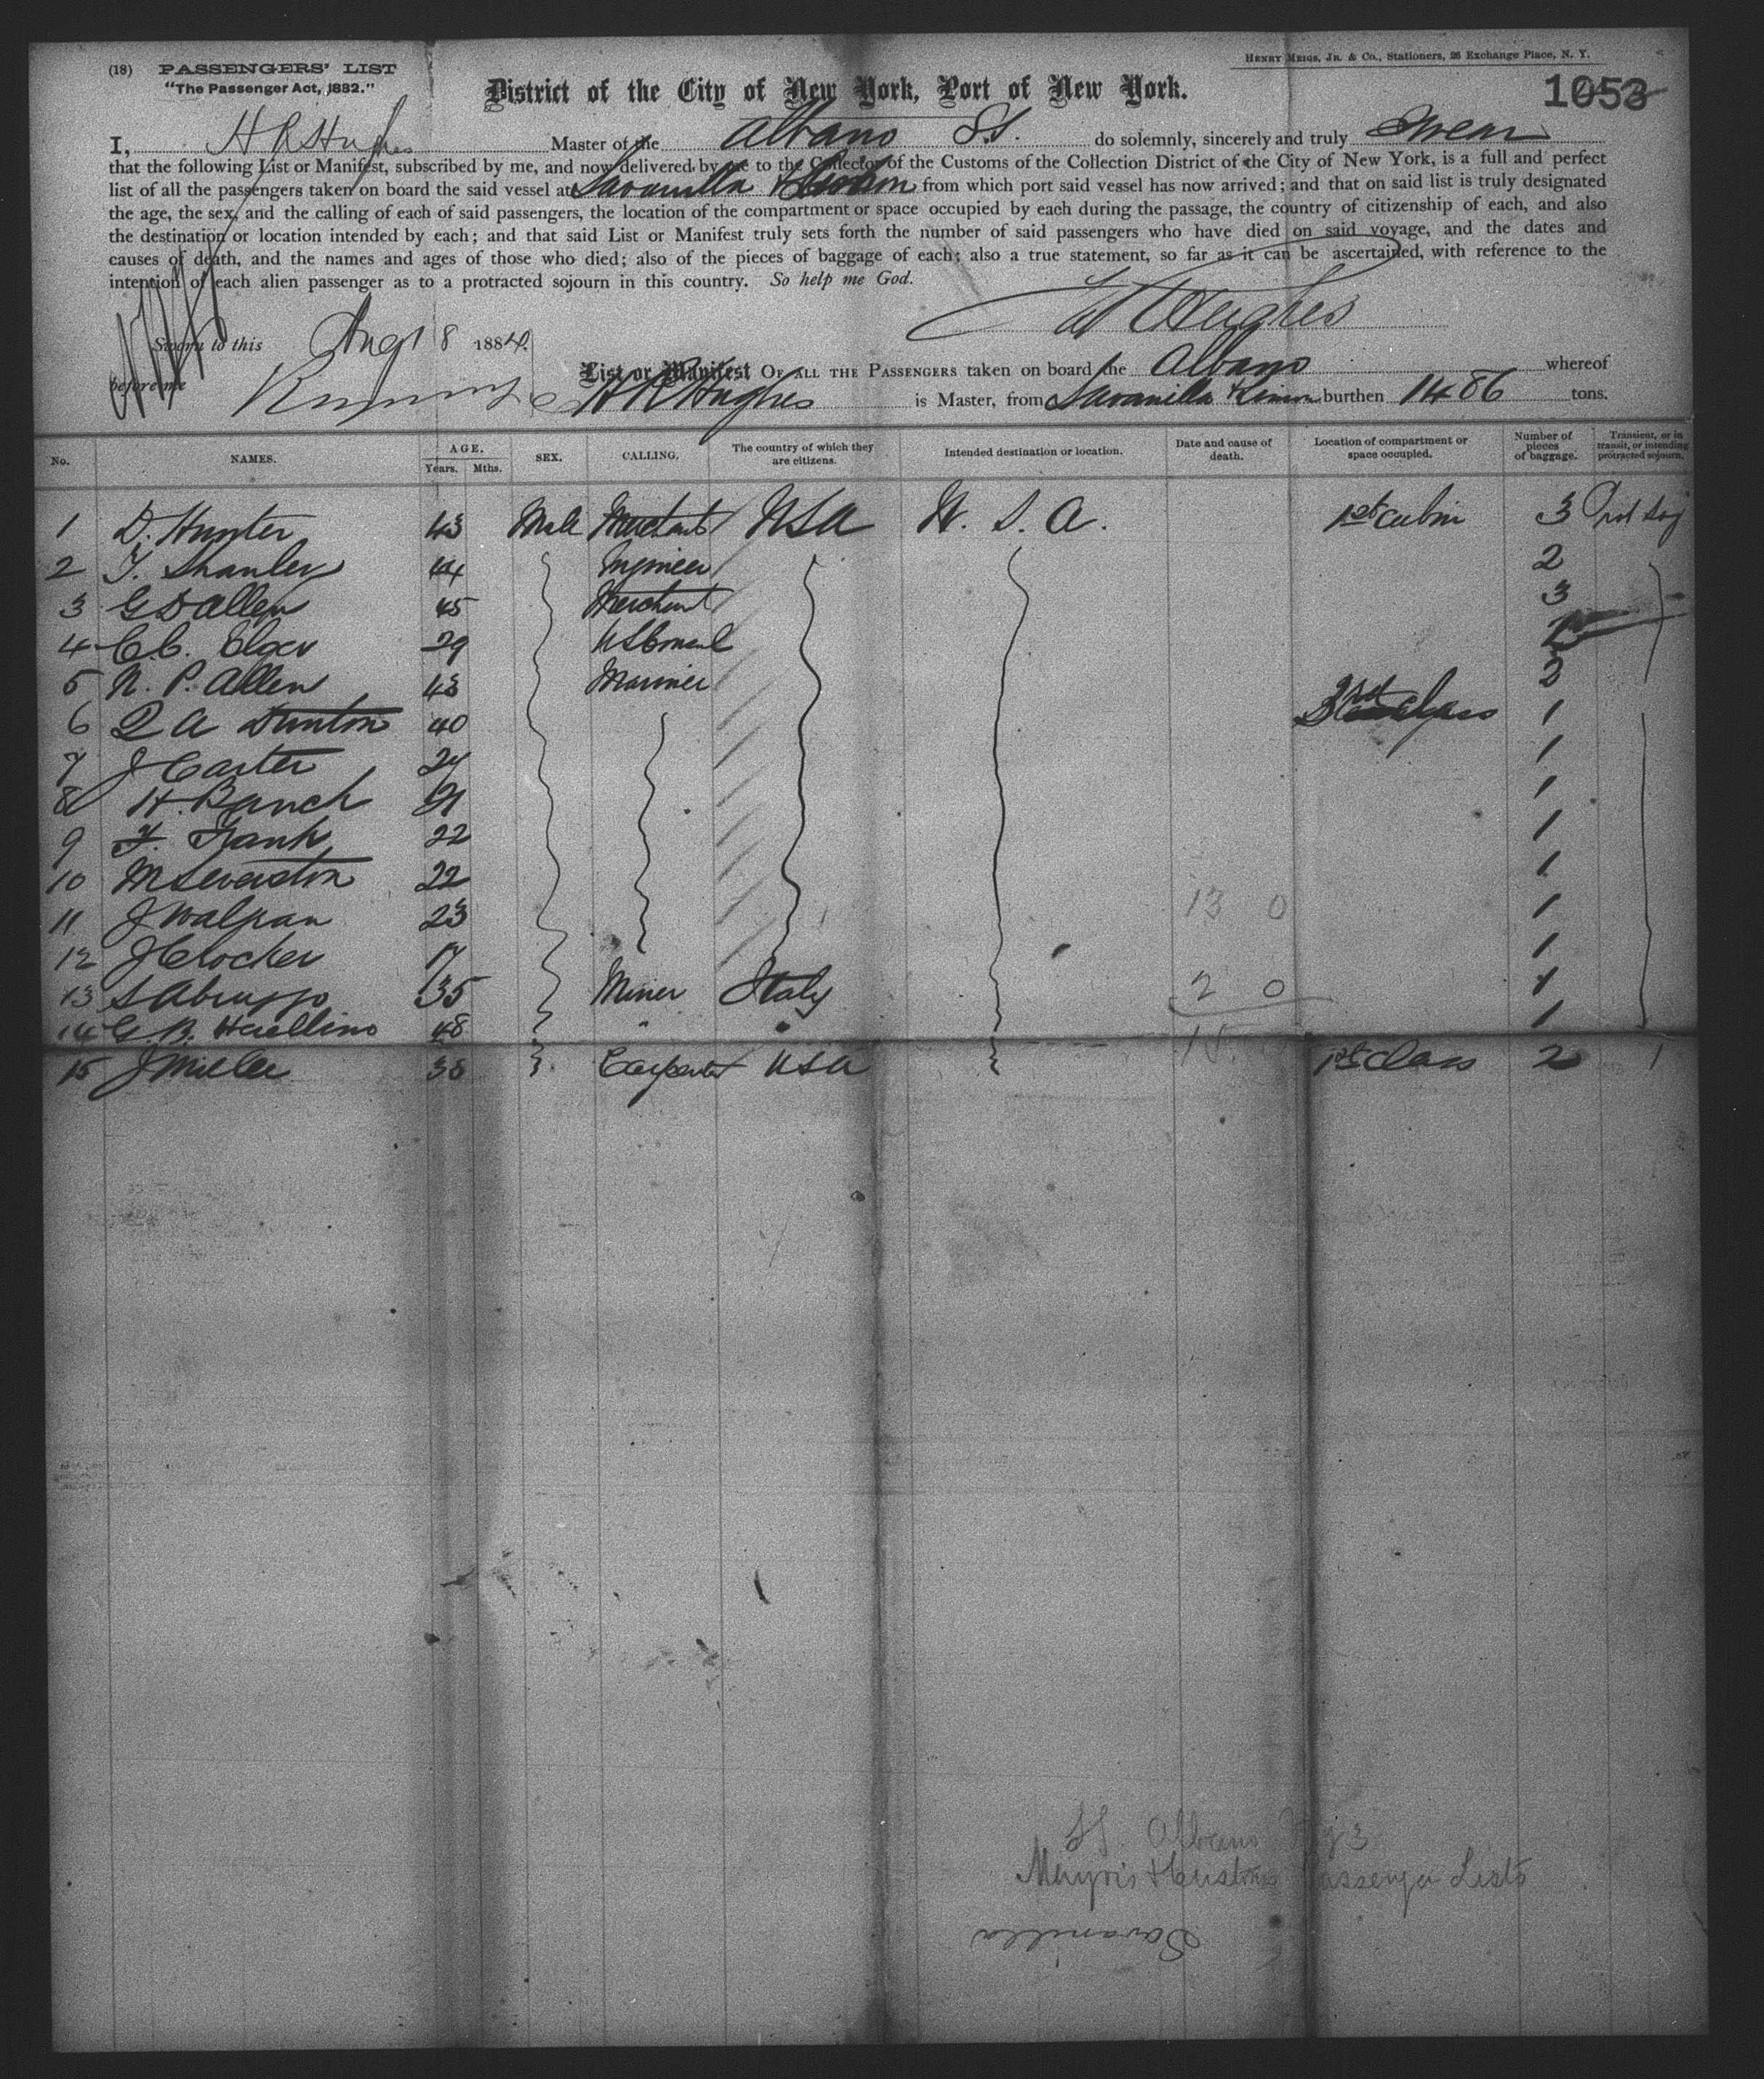 HENRY MEIGS, JR. & CO., Stationers, 26 Exchange Place, N. Y.
(18) PASSENGERS' LIST
"The Passenger Act, 1882."
District of the City of New York, Port of New York.
1053
I, H R Hughes Master of the Albano SS. do solemnly, sincerely and truly swear
that the following List or Manifest, subscribed by me, and now delivered by me to the Collector of the Customs of the Collection District of the City of New York, is a full and perfect
list of all the passengers taken on board the said vessel at Savanilla & Limon from which port said vessel has now arrived; and that on said list is truly designated
the age, the sex, and the calling of each of said passengers, the location of the compartment or space occupied by each during the passage, the country of citizenship of each, and also
the destination or location intended by each; and that said List or Manifest truly sets forth the number of said passengers who have died on said voyage, and the dates and
causes of death, and the names and ages of those who died; also of the pieces of baggage of each; also a true statement, so far as it can be ascertained, with reference to the
intention of each alien passenger as to a protracted sojourn in this country. So help me God.
H R Hughes
Sworn to this Aug 18 1884
before me
List or Manifest OF ALL THE PASSENGERS taken on board the Albano whereof
H R Hughes is Master, from Savanilla & Limon burthen 1486 tons.
No. NAMES. AGE. Years. Mths. SEX. CALLING. The country of which they are citizens. Intended destination or location. Date and cause of death. Location of compartment or space occupied. Number of pieces of baggage. Transient, or in transit, or intending protracted sojourn.
1 D. Hunter 43 Male Merchant USA U. S. A. 1st Cabin 3 Prot Soj
2 T. Shanley 44 Engineer 2
3 G D Allen 45 Merchant 3
4 C. C. 29 US Consul 2
5 N. P. Allen 43 Mariner 2
6 A Dunton 40 class 1
7 J Carter 24 1
8 H. Banch 21 1
9 F. Frank 22 1
10 M Severston 22 1
11 J Walpan 23 1
13 0
12 J Crocker 17 1
13 S Abruzzo 35 Miner Italy 1
2 0
14 G. B. 48 " " 1
15
15 J Miller 38 Carpenter USA 1st Class 2 1
SS. Albano
Passenger Lists
Savanilla